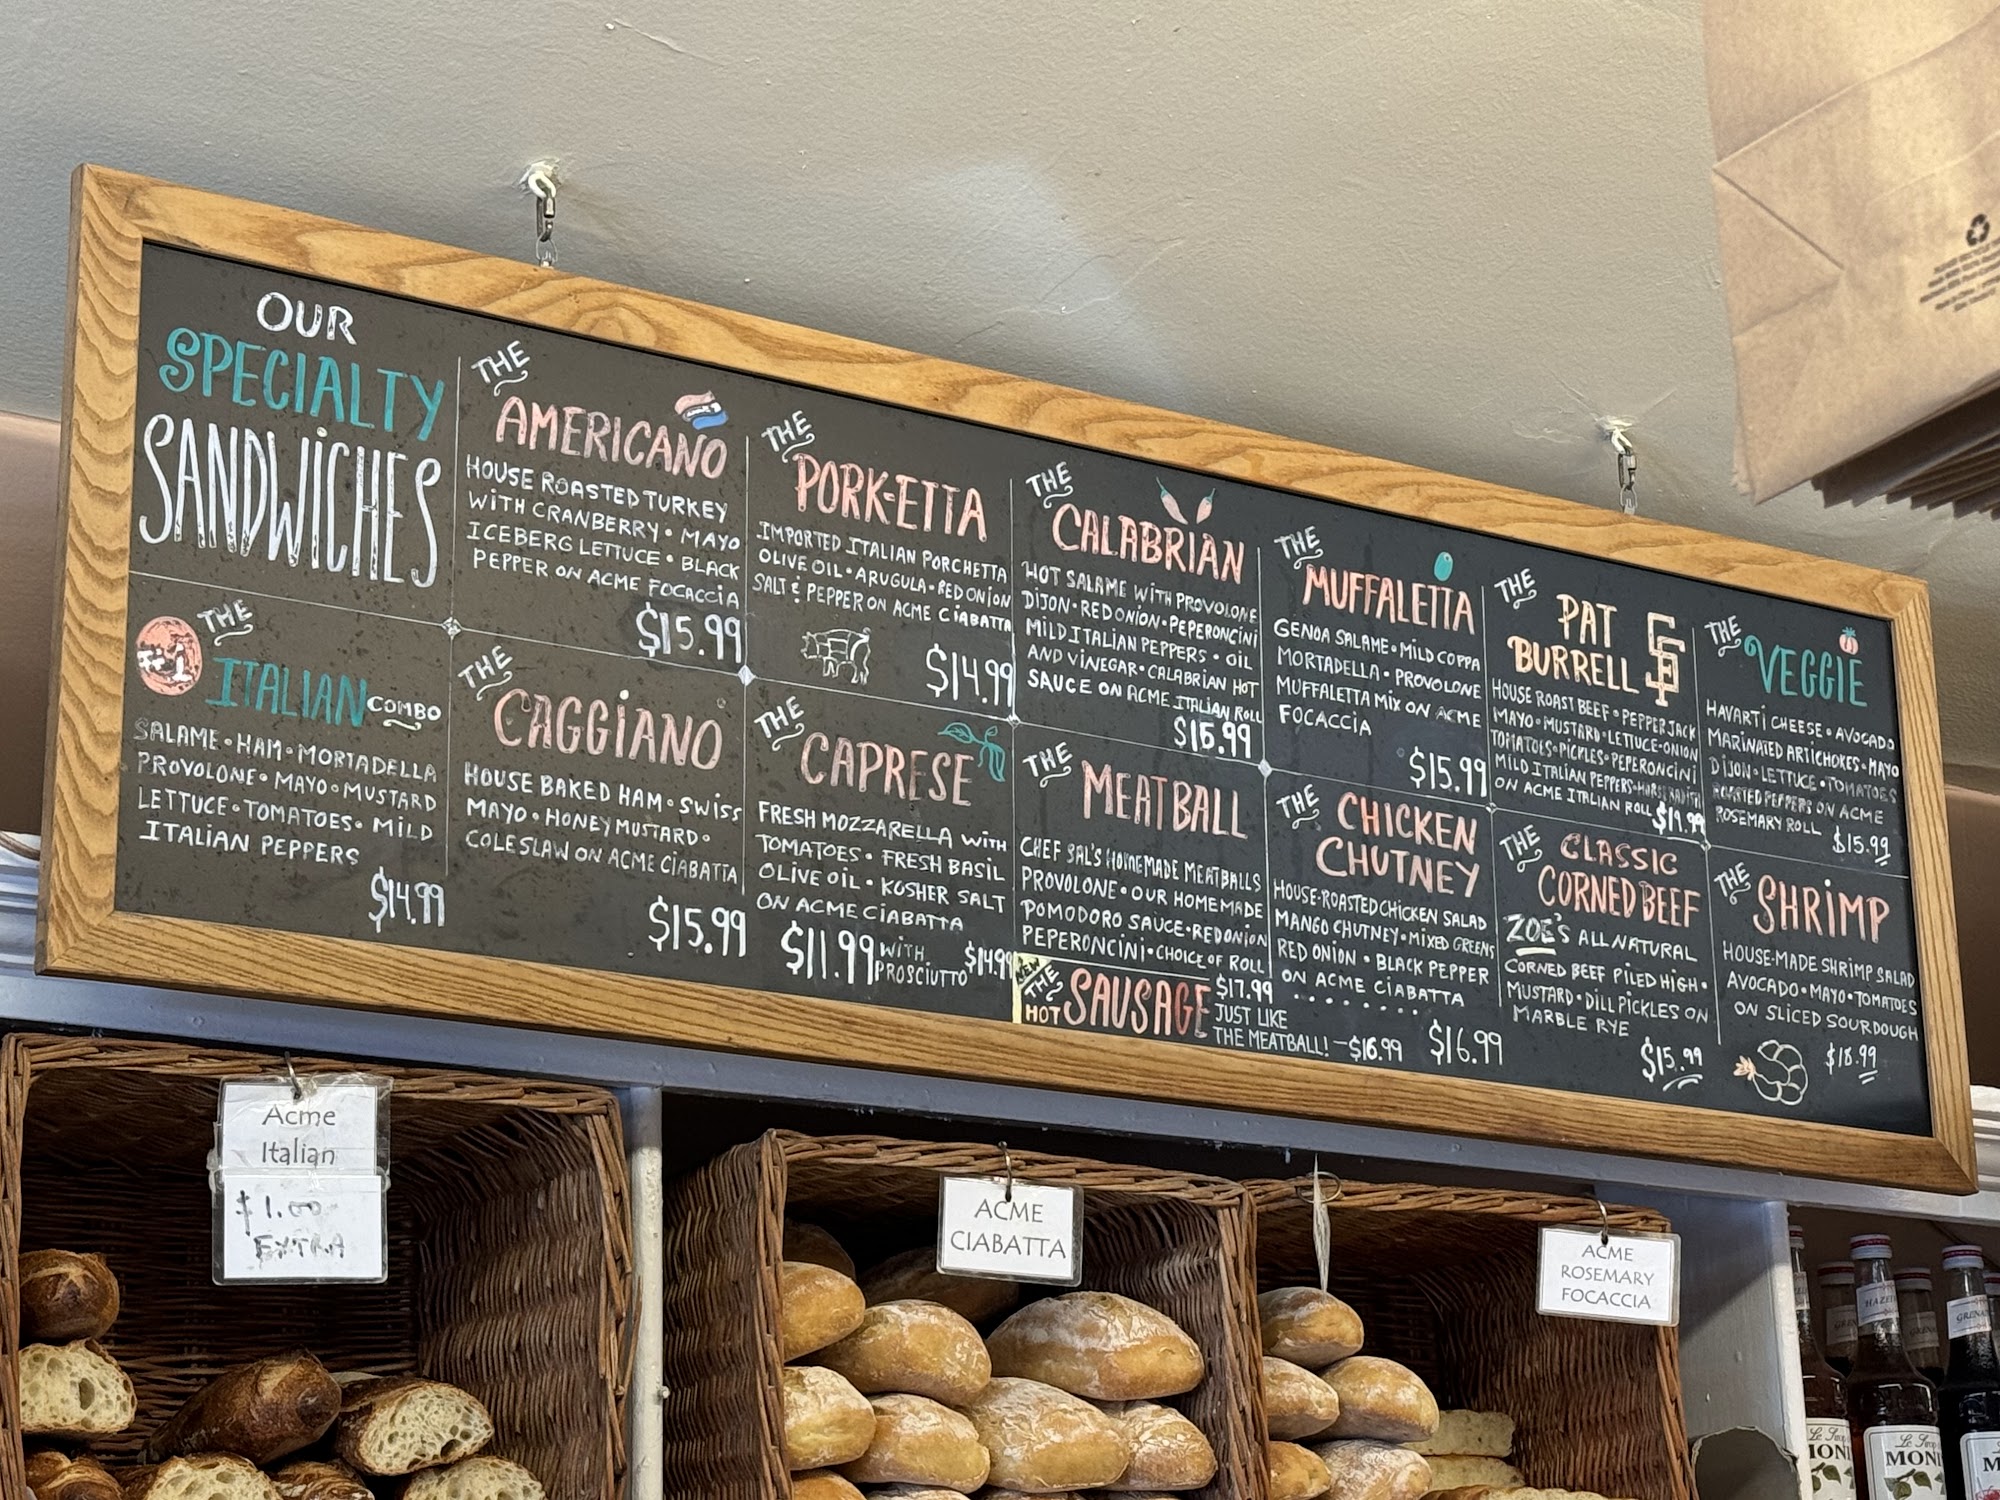 OUR
SPECIALTY
SANDWICHES
THE
AMERICANO
HOUSE ROASTED TURKEY
WITH CRANBERRY • MAYO
ICEBERG LETTUCE • BLACK
PEPPER ON ACME FOCACCIA
$15.99
THE
PORK-ETTA
IMPORTED ITALIAN PORCHETTA
OLIVE OIL • ARUGULA • RED ONION
SALT & PEPPER ON ACME CIABATTA
$14.99
THE
CALABRIAN
HOT SALAME WITH PROVOLONE
DIJON • RED ONION • PEPERONCINI
MILD ITALIAN PEPPERS • OIL
AND VINEGAR • CALABRIAN HOT
SAUCE ON ACME ITALIAN ROLL
THE
MUFFALETTA
GENOA SALAME • MILD COPPA
MORTADELLA • PROVOLONE
MUFFALETTA MIX ON ACME
FOCACCIA
$15.99
THE
PAT
BURRELL SF
HOUSE ROAST BEEF • PEPPER JACK
MAYO • MUSTARD • LETTUCE • ONION
TOMATOES • PICKLES • PEPERONCINI
MILD ITALIAN PEPPERS •
ON ACME ITALIAN ROLL $19.99
THE
VEGGIE
HAVARTI CHEESE • AVOCADO
MARINATED ARTICHOKES • MAYO
DIJON • LETTUCE • TOMATOES
ROASTED PEPPERS ON ACME
ROSEMARY ROLL $15.99
#1
THE
ITALIAN COMBO
SALAME • HAM • MORTADELLA
PROVOLONE • MAYO • MUSTARD
LETTUCE • TOMATOES • MILD
ITALIAN PEPPERS
$14.99
THE
CAGGIANO
HOUSE BAKED HAM • SWISS
MAYO • HONEY MUSTARD •
COLESLAW ON ACME CIABATTA
$15.99
THE
CAPRESE
FRESH MOZZARELLA WITH
TOMATOES • FRESH BASIL
OLIVE OIL • KOSHER SALT
ON ACME CIABATTA
$11.99 WITH PROSCIUTTO $14.99
THE
MEATBALL
CHEF SAL'S HOMEMADE MEATBALLS
PROVOLONE • OUR HOMEMADE
POMODORO SAUCE • RED ONION
PEPERONCINI • CHOICE OF ROLL
$17.99
NEW
THE
HOT SAUSAGE
JUST LIKE
THE MEATBALL! — $16.99
THE
CHICKEN
CHUTNEY
HOUSE-ROASTED CHICKEN SALAD
MANGO CHUTNEY • MIXED GREENS
RED ONION • BLACK PEPPER
ON ACME CIABATTA
$16.99
THE
CLASSIC
CORNED BEEF
ZOE'S ALL NATURAL
CORNED BEEF PILED HIGH •
MUSTARD • DILL PICKLES ON
MARBLE RYE
$15.99
THE
SHRIMP
HOUSE-MADE SHRIMP SALAD
AVOCADO • MAYO • TOMATOES
ON SLICED SOURDOUGH
$18.99
Acme
Italian
$1.00
EXTRA
ACME
CIABATTA
ACME
ROSEMARY
FOCACCIA
Le Sirop
MONI
Le Sirop
MONI
M